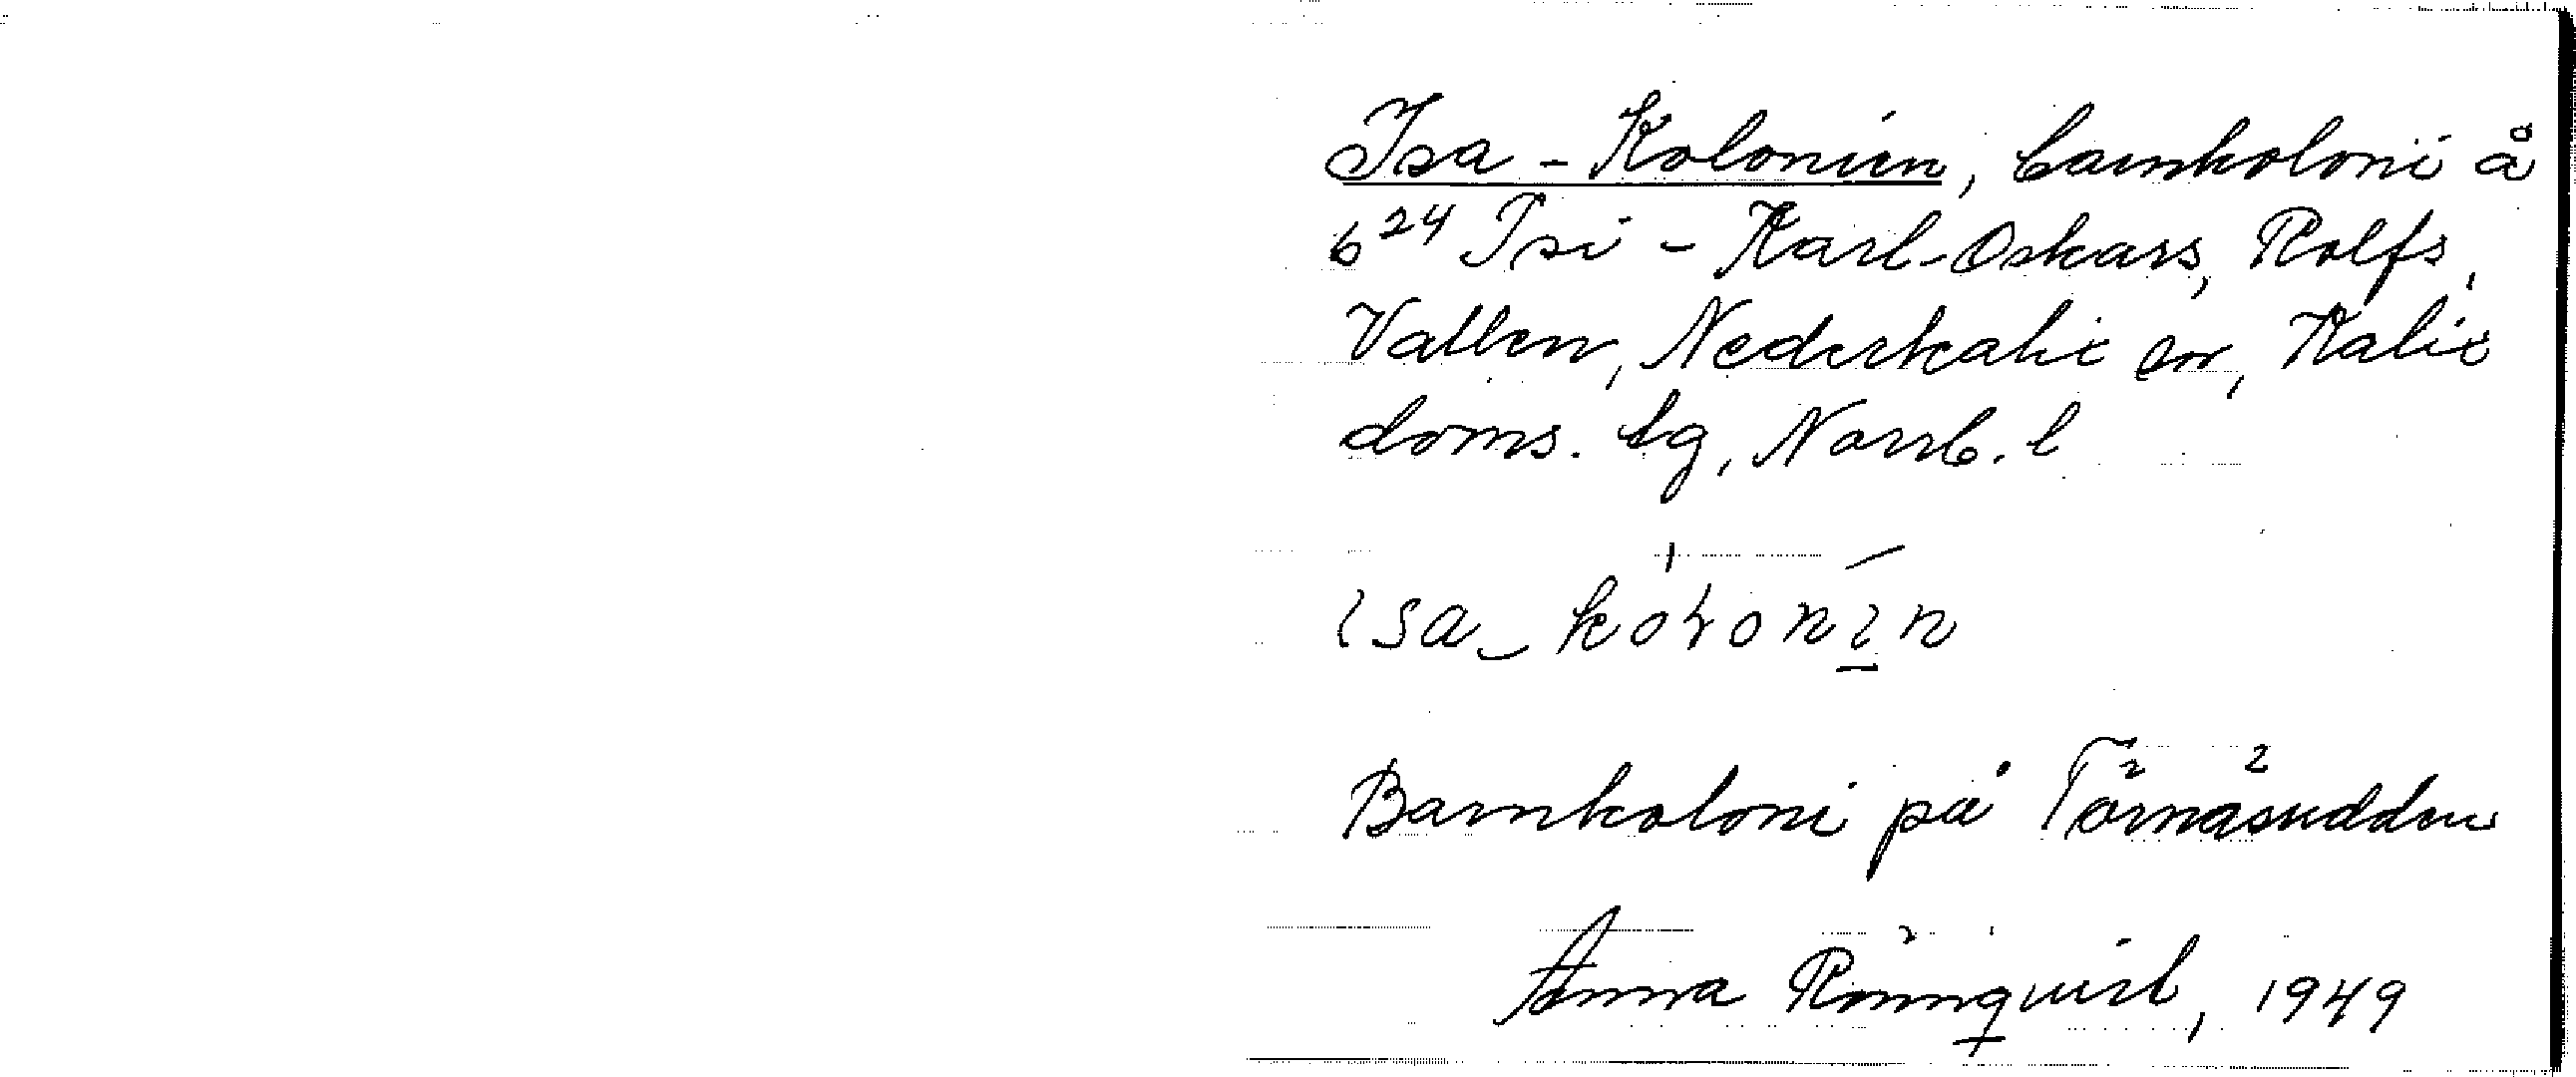 Isa-Kolonien, barnkoloni å
6²⁴ Isi-Karl-Oskars, Rolfs,
Vallen, Nederkalix sn, Kalix
doms. tg, Norrb. l
ısa-koɬonın
Barnkoloni på Törnäsudden
Anna Rönnquist, 1949